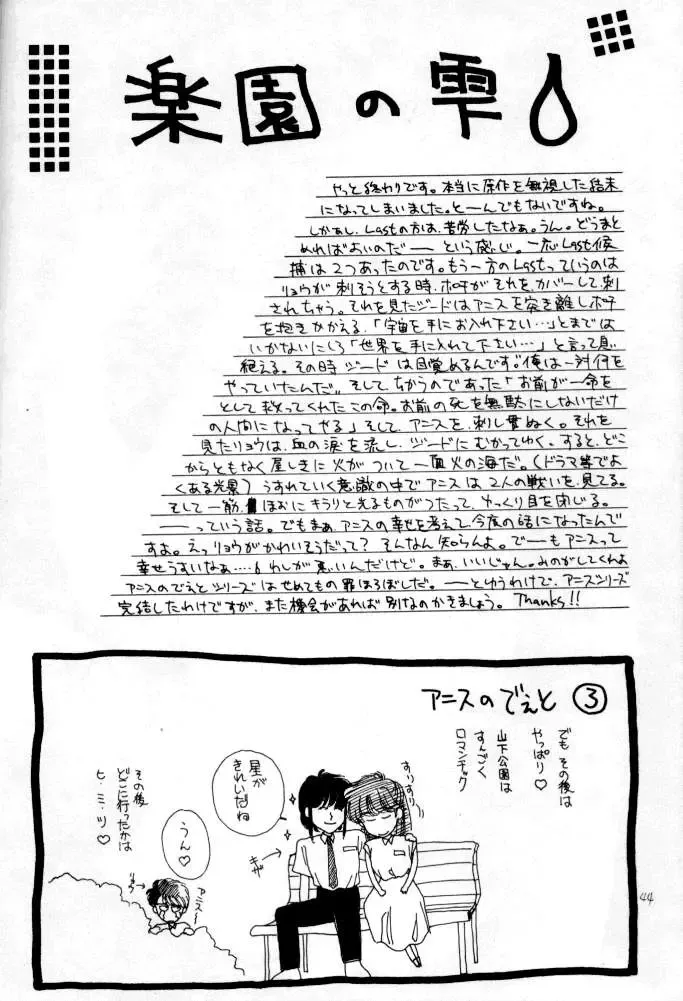 楽園の雫
やっと終わりです。本当に原作を無視した結末
になってしまいました。と—んでもないですね。
しかぁし、Lastの方は、苦労したなぁ。うん。どうまと
めればよいのだ—— という感じ。一応Last候
補は2つあったのです。もう一方のLastっていうのは
リョウが刺そうとする時、ポチがそれをカバーして刺
されちゃう。それを見たジードはアニスを突き離しポチ
を抱きかかえる、「宇宙を手にお入れ下さい…」とまでは
いかないにしろ「世界を手に入れて下さい…」と言って息
絶える。その時 ジードは目覚めるんです。"俺は一対何を
やっていたんだ〟そしてちかうのであった「お前が一命を
として救ってくれたこの命。お前の死を無駄にしないだけ
の人間になってやる」そして、アニスを、刺し貫ぬく。それを
見たリョウは、血の涙を流し、ジードにむかってゆく。すると、どこ
からともなく屋しきに火がついて一面火の海だ。(ドラマ等でよ
くある光景) うすれていく意識の中でアニスは 2人の戦いを、見てる。
そして一筋、ほおにキラリと光るものがつたって、ゆっくり目を閉じる。
——っていう話。でもまぁ、アニスの幸せを考えて今度の話になったんで
すよ。えっリョウがかわいそうだって? そんなん知らんよ。で—もアニスって
幸せうすいなぁ…。わしが悪いんだけど。まぁ、いいじゃん。みのがしてくれよ
アニスのでえとシリーズ はせめてもの罪ほろぼしだ。——とゆうわけで、アニスシリーズ
完結したわけですが、また機会があれば 別なのかきましょう。Thanks!!
アニスのでぇと ③
でも その後は
やっぱり♡
山下公園は
すんごく
ロマンチック
すりすり
星が
きれいだね
キザ
うん♡
アニス〜
リョウ
その後
どこに行ったかは
ヒ・ミ・ツ♡
44